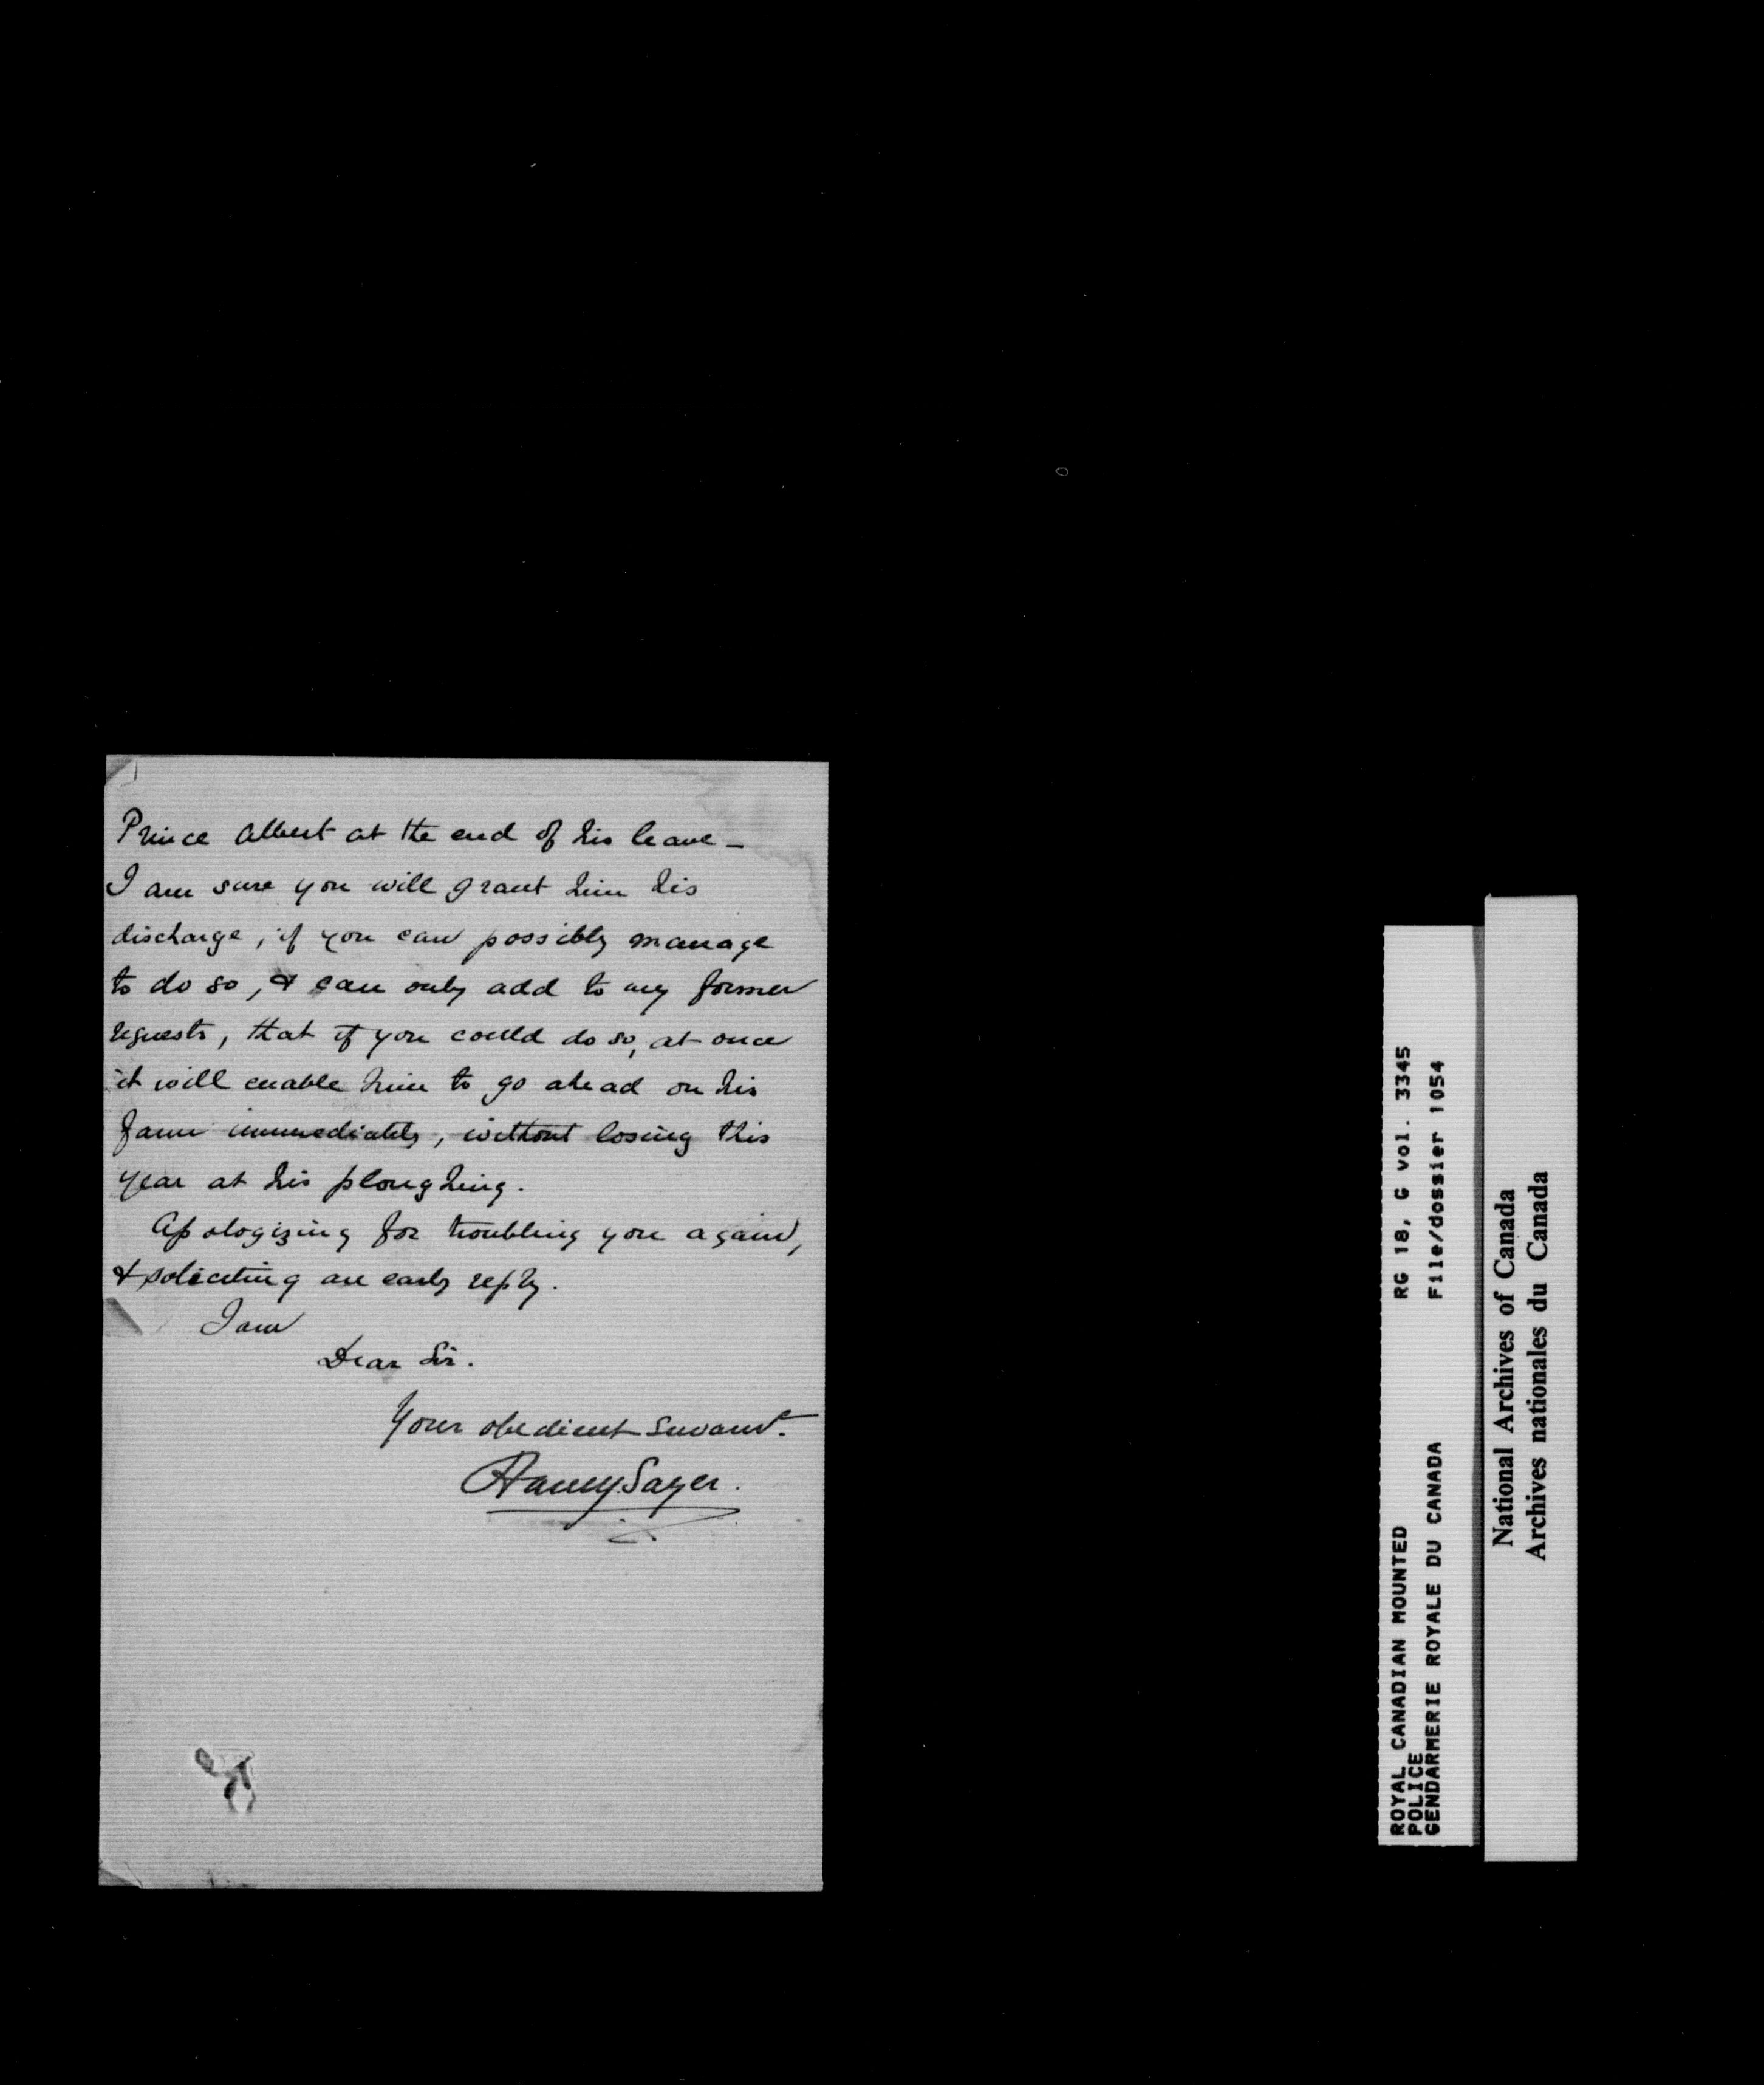 Prince Albert at the end of his leave –
I am sure you will grant him his
discharge, if you can possibly manage
to do so, & can only add to my former
requests, that if you could do so, at once
it will enable him to go ahead on his
farm immediately, without losing this
year at his ploughing.
Apologizing for troubling you again,
& soliciting an early reply.
I am
Dear Sir.
Your obedient servant.
Sayer.
ROYAL CANADIAN MOUNTED
POLICE
GENDARMERIE ROYALE DU CANADA
RG 18, G vol. 3345
File/dossier 1054
National Archives of Canada
Archives nationales du Canada